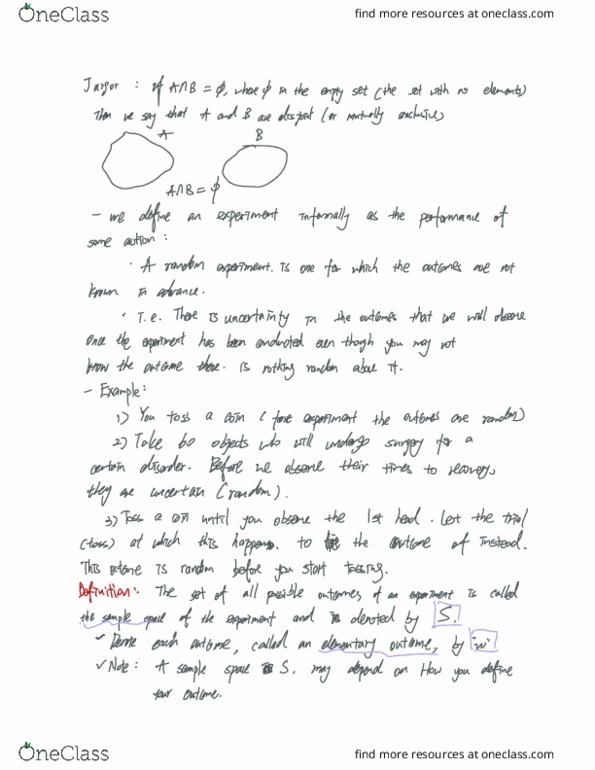 OneClass
find more resources at oneclass.com
Jargon : if A∩B = ϕ, where ϕ is the empty set (the set with no elements)
Then we say that A and B are disjoint (or mutually exclusive)
A
B
A∩B = ϕ
- we define an experiment informally as the performance of
some action :
· A random experiment is one for which the outcomes are not
known in advance.
· I.e. There is uncertainty in the outcomes that we will observe
Once the experiment has been conducted even though you may not
know the outcome there. is nothing random about it.
- Example :
1) You toss a coin ( experiment the outcomes are random)
2) Take 60 objects who will undergo surgery for a
certain disorder. Before we observe their times to recovery,
they are uncertain (random).
3) Toss a coin until you observe the 1st head. Let the trial
(toss) at which this happens. to be the outcome of instead.
This outcome is random before you start tossing.
Definition: The set of all possible outcomes of an experiment is called
the sample space of the experiment and is denoted by S.
✓ Denote each outcome, called an elementary outcome, by "w"
✓ Note : A sample space S. may depend on How you define
your outcome.
OneClass
find more resources at oneclass.com